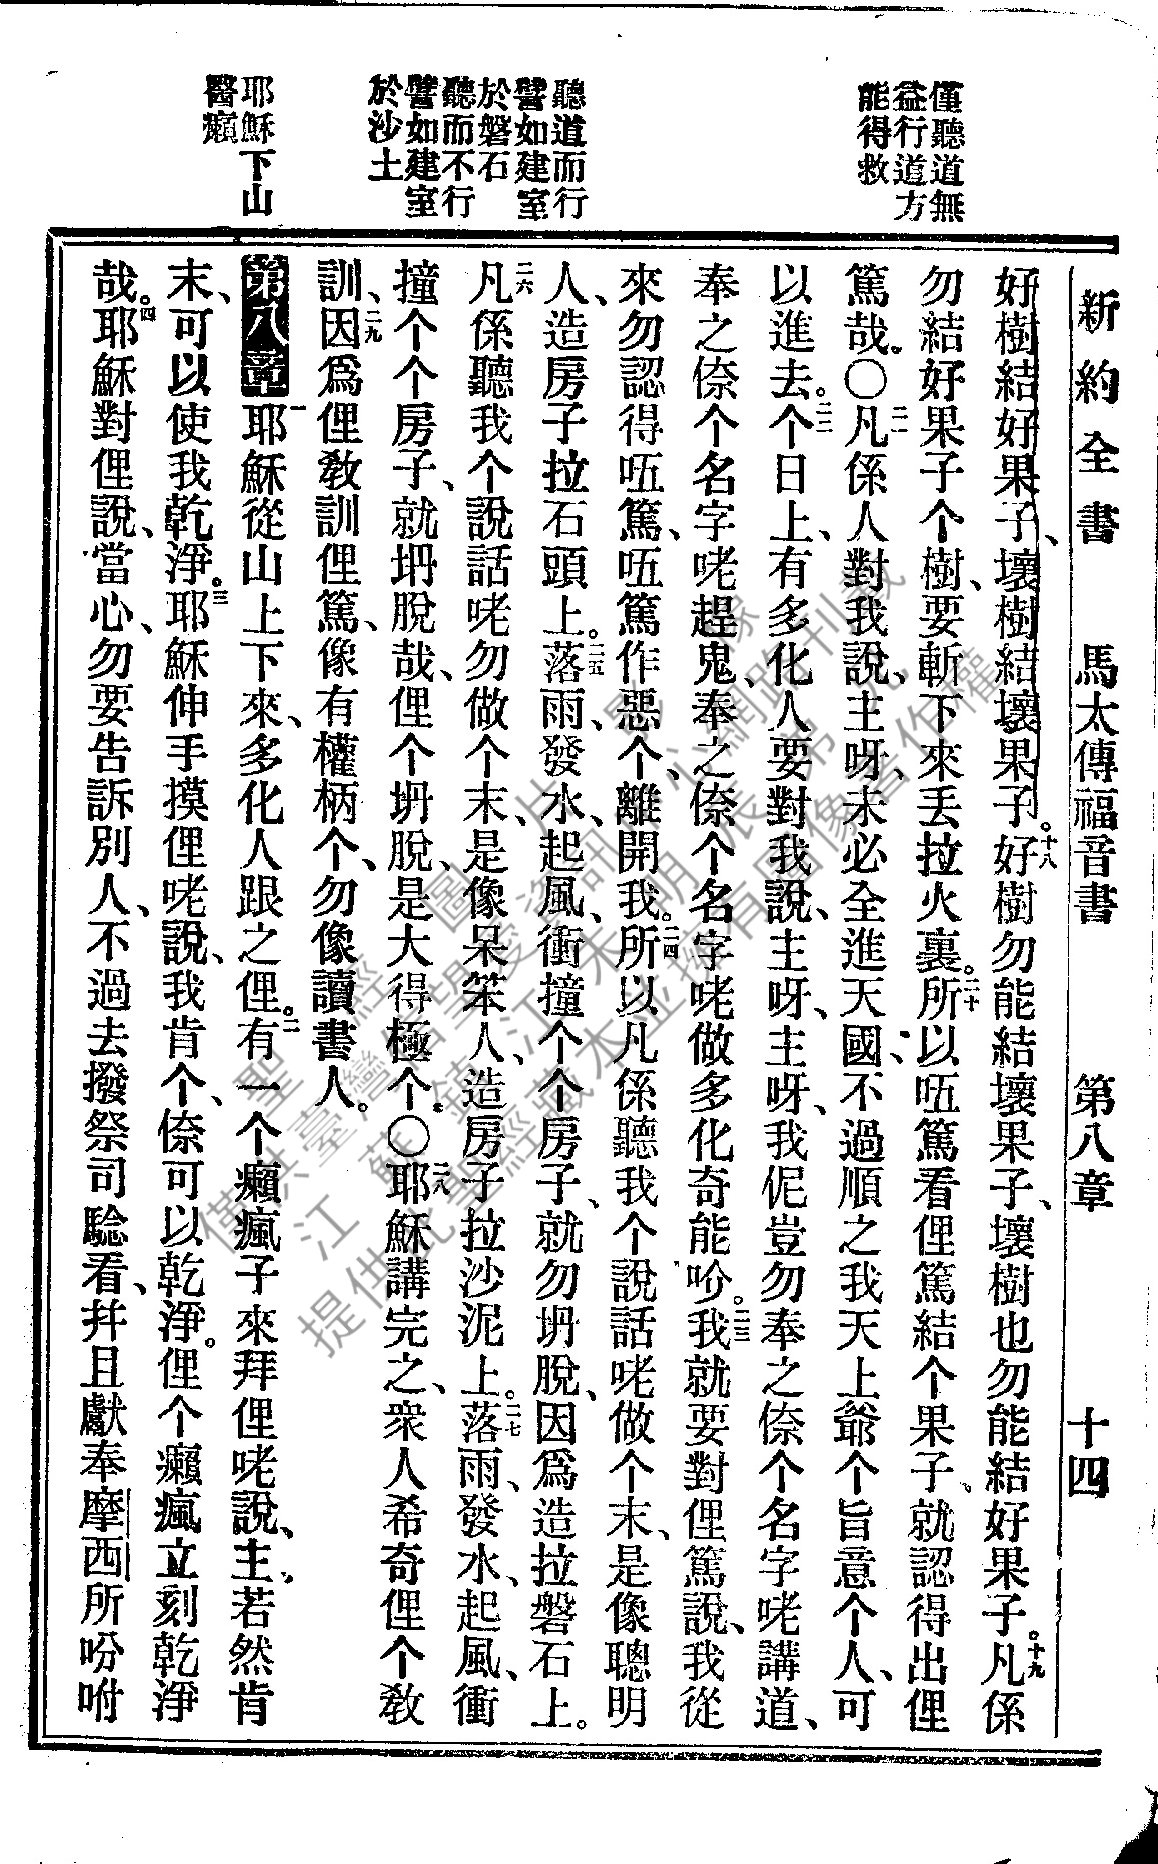 新約全書 馬太傳福音書 第八章 十四
僅聽道無
益行道方
能得救
聽道而行
譬如建室
於磐石
聽而不行
譬如建室
於沙土
耶穌下山
醫癩
好樹結好果子、壞樹結壞果子。十八好樹勿能結壞果子、壞樹也勿能結好果子。十九凡係
勿結好果子个樹、要斬下來丟拉火裏。二十所以㕶篤看俚篤結个果子。就認得出俚
篤哉。〇二一凡係人對我說、主呀、未必全進天國、不過順之我天上爺个旨意个人、可
以進去。二二个日上、有多化人要對我說、主呀、主呀、我伲豈勿奉之倷个名字咾講道、
奉之倷个名字咾趕鬼、奉之倷个名字咾做多化奇能吤。二三我就要對俚篤說、我從
來勿認得㕶篤、㕶篤作惡个、離開我。二四所以凡係聽我个說話咾做个末、是像聰明
人、造房子拉石頭上。二五落雨、發水、起風、衝撞个个房子、就勿坍脫、因爲造拉磐石上。
二六凡係聽我个說話咾勿做个末、是像呆笨人、造房子拉沙泥上。二七落雨、發水、起風、衝
撞个个房子、就坍脫哉、俚个坍脫、是大得極个。〇二八耶穌講完之、衆人希奇俚个教
訓、二九因爲俚教訓俚篤、像有權柄个、勿像讀書人。
第八章 一耶穌從山上下來、多化人跟之俚。二有一个癩瘋子來拜俚咾說、主、若然肯
末、可以使我乾淨。三耶穌伸手摸俚咾說、我肯个、倷可以乾淨。俚个癩瘋立刻乾淨
哉。四耶穌對俚說、當心、勿要告訴別人、不過去撥祭司騐看、幷且獻奉摩西所吩咐
聖經圖片影像
僅供臺灣信望愛資訊中心網路刊載
提供此聖經藏本並擁有圖像著作權